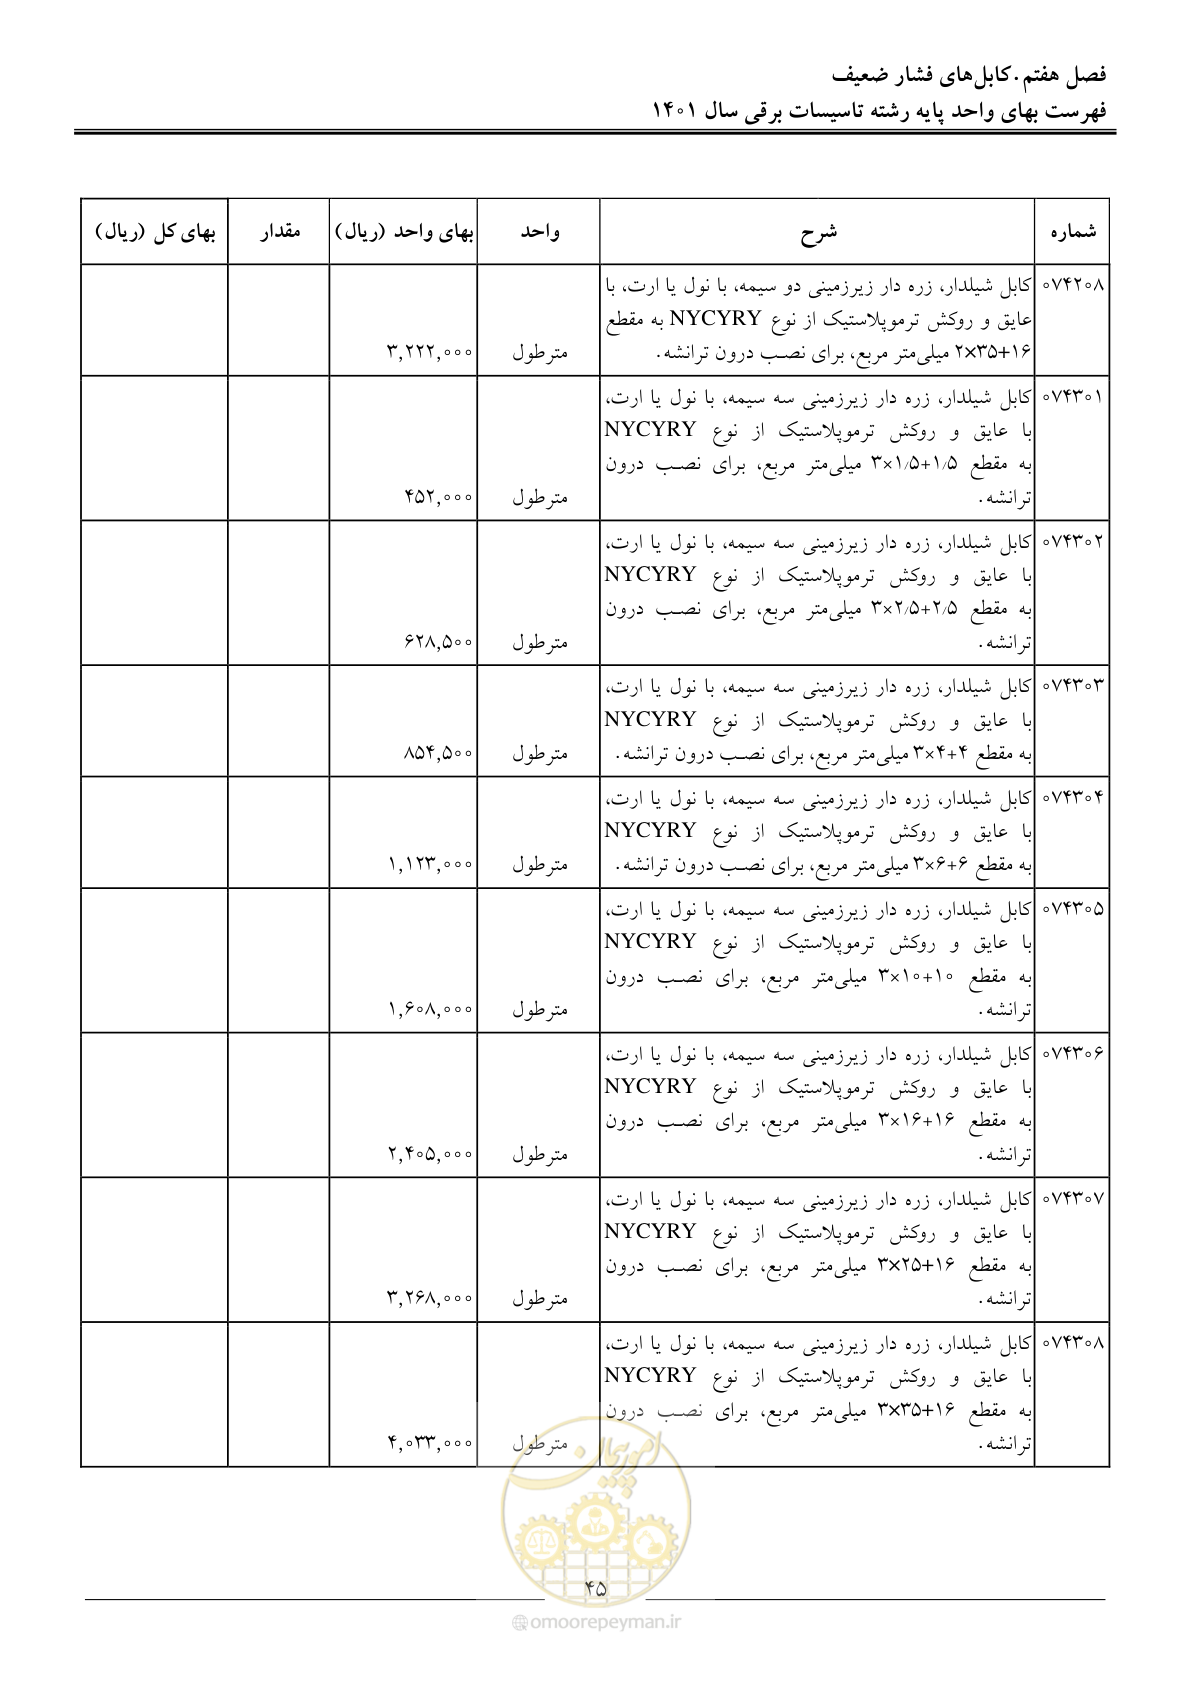 فصل هفتم.کابل‌های فشار ضعیف
فهرست بهای واحد پایه رشته تاسیسات برقی سال ۱۴۰۱
شماره شرح واحد بهای واحد (ریال) مقدار بهای کل (ریال)
۰۷۴۲۰۸ کابل شیلدار، زره دار زیرزمینی دو سیمه، با نول یا ارت، با
عایق و روکش ترموپلاستیک از نوع NYCYRY به مقطع
۲×۳۵+۱۶ میلی‌متر مربع، برای نصب درون ترانشه. مترطول ۳,۲۲۲,۰۰۰
۰۷۴۳۰۱ کابل شیلدار، زره دار زیرزمینی سه سیمه، با نول یا ارت،
با عایق و روکش ترموپلاستیک از نوع NYCYRY
به مقطع ۳×۱/۵+۱/۵ میلی‌متر مربع، برای نصب درون
ترانشه. مترطول ۴۵۲,۰۰۰
۰۷۴۳۰۲ کابل شیلدار، زره دار زیرزمینی سه سیمه، با نول یا ارت،
با عایق و روکش ترموپلاستیک از نوع NYCYRY
به مقطع ۳×۲/۵+۲/۵ میلی‌متر مربع، برای نصب درون
ترانشه. مترطول ۶۲۸,۵۰۰
۰۷۴۳۰۳ کابل شیلدار، زره دار زیرزمینی سه سیمه، با نول یا ارت،
با عایق و روکش ترموپلاستیک از نوع NYCYRY
به مقطع ۳×۴+۴ میلی‌متر مربع، برای نصب درون ترانشه. مترطول ۸۵۴,۵۰۰
۰۷۴۳۰۴ کابل شیلدار، زره دار زیرزمینی سه سیمه، با نول یا ارت،
با عایق و روکش ترموپلاستیک از نوع NYCYRY
به مقطع ۳×۶+۶ میلی‌متر مربع، برای نصب درون ترانشه. مترطول ۱,۱۲۳,۰۰۰
۰۷۴۳۰۵ کابل شیلدار، زره دار زیرزمینی سه سیمه، با نول یا ارت،
با عایق و روکش ترموپلاستیک از نوع NYCYRY
به مقطع ۳×۱۰+۱۰ میلی‌متر مربع، برای نصب درون
ترانشه. مترطول ۱,۶۰۸,۰۰۰
۰۷۴۳۰۶ کابل شیلدار، زره دار زیرزمینی سه سیمه، با نول یا ارت،
با عایق و روکش ترموپلاستیک از نوع NYCYRY
به مقطع ۳×۱۶+۱۶ میلی‌متر مربع، برای نصب درون
ترانشه. مترطول ۲,۴۰۵,۰۰۰
۰۷۴۳۰۷ کابل شیلدار، زره دار زیرزمینی سه سیمه، با نول یا ارت،
با عایق و روکش ترموپلاستیک از نوع NYCYRY
به مقطع ۳×۲۵+۱۶ میلی‌متر مربع، برای نصب درون
ترانشه. مترطول ۳,۲۶۸,۰۰۰
۰۷۴۳۰۸ کابل شیلدار، زره دار زیرزمینی سه سیمه، با نول یا ارت،
با عایق و روکش ترموپلاستیک از نوع NYCYRY
به مقطع ۳×۳۵+۱۶ میلی‌متر مربع، برای نصب درون
ترانشه. مترطول ۴,۰۳۳,۰۰۰
امور پیمان
۴۵
omoorepeyman.ir